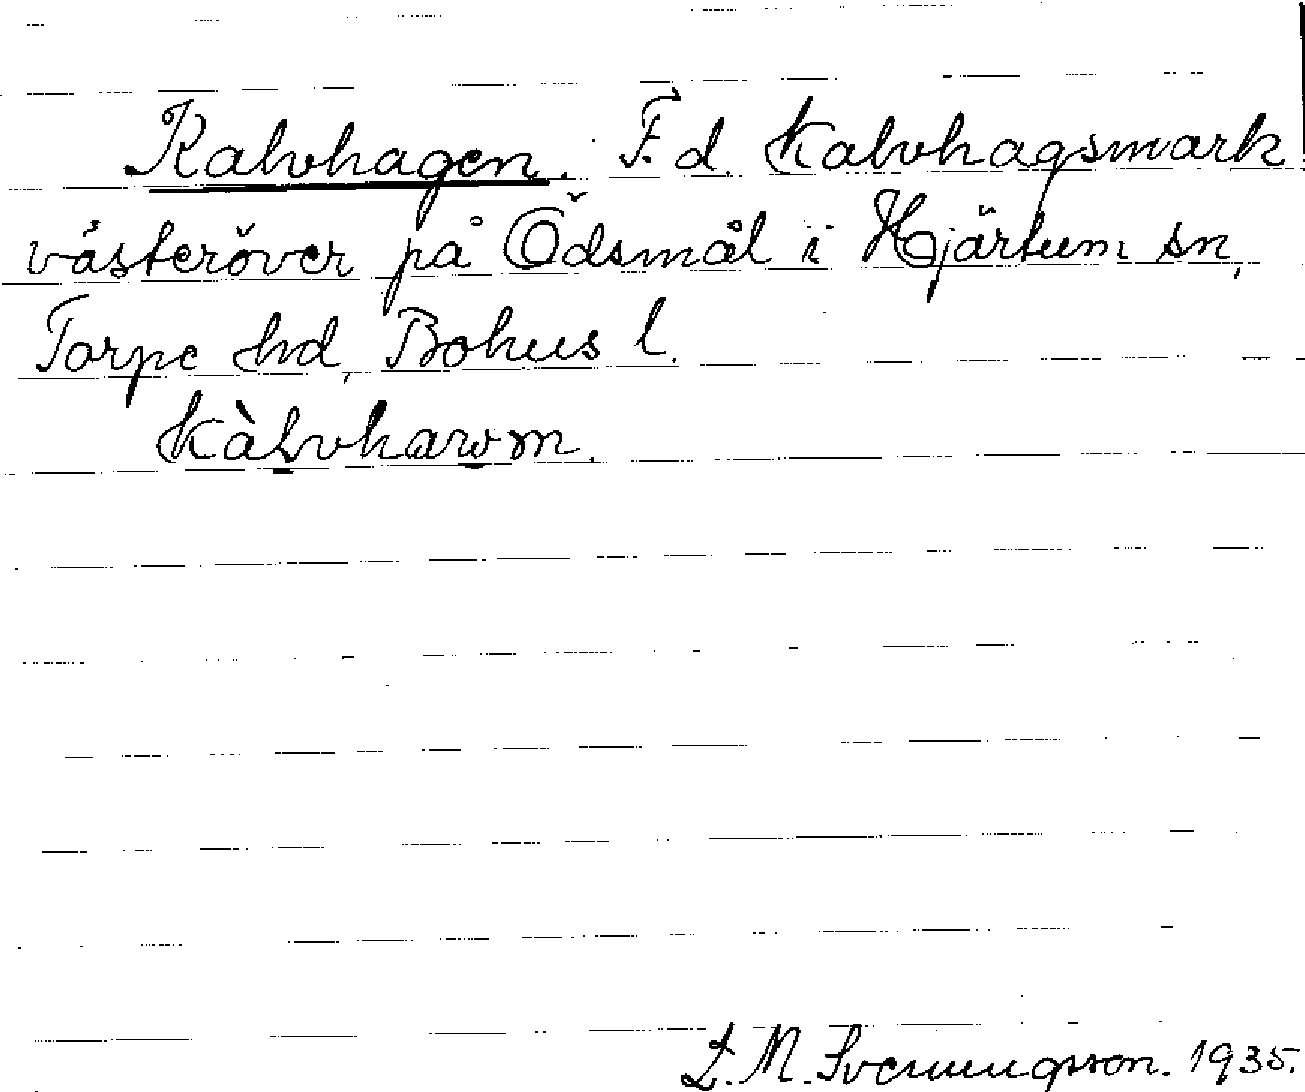 Kalvhagen. F. d. Kalvhagsmark
västeröver på Ödsmål i Hjärtum sn,
Torpe hd, Bohus l.
Kàlvhawm.
L. M. Svenungsson. 1935.